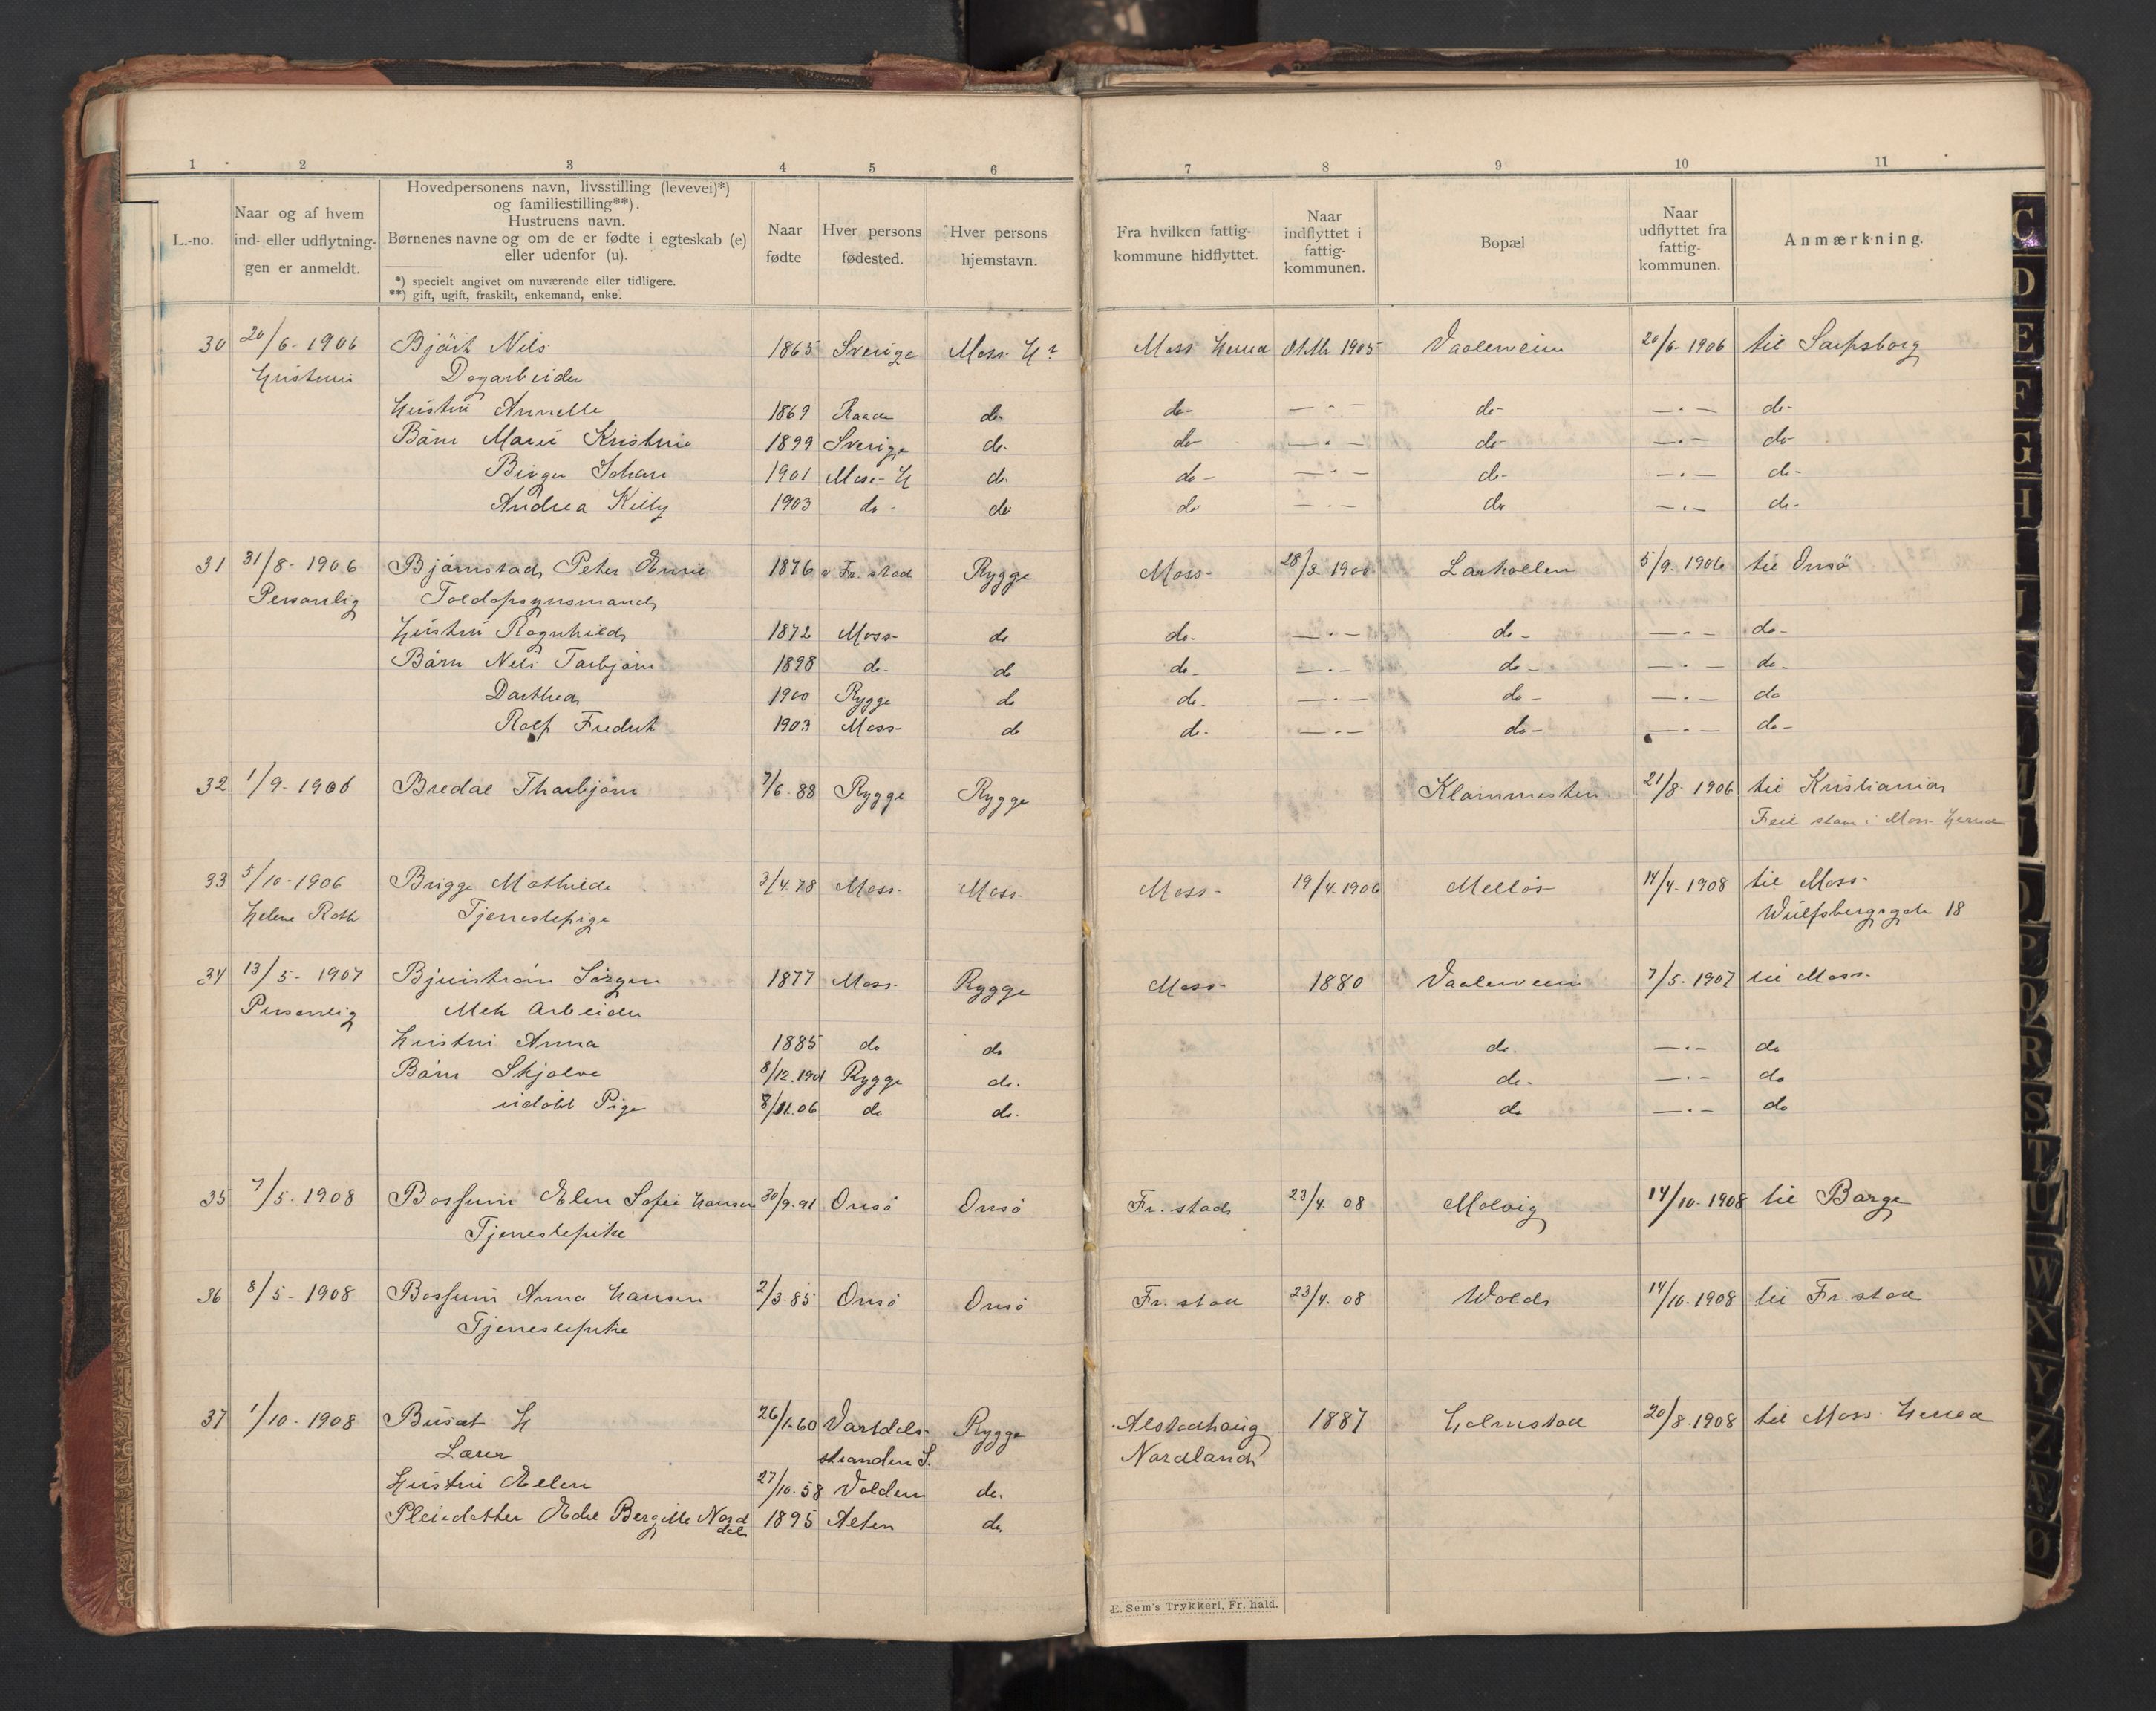 1 2 3 4 5 6 7 8 9 10 11
L.-no.
Naar og af hvem
ind- eller udflytnin-
gen er anmeldt.
Hovedpersonens navn, livsstilling (levevei)*)
og familiestilling**).
Hustruens navn.
Børnenes navne og om de er fødte i egteskab (e)
eller udenfor (u).
*) specielt angivet om nuværende eller tidligere.
**) gift, ugift, fraskilt, enkemand, enke.
Naar
fødte
Hver persons
fødested.
Hver persons
hjemstavn.
Fra hvilken fattig-
kommune hidflyttet.
Naar
indflyttet i
fattig-
kommunen.
Bopæl
Naar
udflyttet fra
fattig-
kommunen.
Anmærkning.
30 20/6-1906 Bjärt Nils 1865 Sverige Moss Hd Moss Herred Oktbr 1905 Vaalerveien 20/6-1906 til Sarpsborg
Hustruen Dagarbeider
Hustru Annette 1869 Raade do- do- — - — do- — - — do-
Børn Marie Kristine 1899 Sverige do- do — - — do- — - — do
Birger Johan 1901 Moss-H do. do- — - — do- — - — do-
Andrea Killy 1903 do- do do — - — do — - — do-
31 31/8-1906 Bjørnstad, Peter 1876 Fr. stad Rygge Moss- 28/3 1900 Larkollen 5/9-1906 til Onsø
Personlig Toldopsynsmand
Hustru Ragnhild 1872 Moss- do do- — - — do- — - — do-
Børn Nils Torbjørn 1898 do- do do- — - — do- — - — do-
Dorthea 1900 Rygge do do- — - — do- — - — do
Rolf Fredrik 1903 Moss- do do- — - — do- — - — do-
32 1/9-1906 Bredal Thorbjørn 7/6-88 Rygge Rygge Klommesten 21/8-1906 til Kristiania
Feil staar i Moss Herred
33 5/10-1906 Brigge Mathilde 3/4.78 Moss- Moss- Moss- 19/4.1906 Melløs 14/4-1908 til Moss-
Helene Roth Tjenestepige Wulfsbergsgate 18
34 13/5-1907 Bjurstrøm Jørgen 1877 Moss- Rygge Moss- 1880 Vaalerveien 7/5-1907 til Moss-
Personlig Mek Arbeider
Hustru Anna 1885 do do do. — - — do
Børn Skjalve 8/12.1901 Rygge do. do- — - — do
udøbt Pige 8/11.06 do do. do — - — do
35 7/5-1908 Bossum Elen Sofie Hansen 30/9.91 Onsø Onsø Fr. stad 23/4. 08 Molvig 14/10-1908 til Borge
Tjenestepike
36 8/5-1908 Bossum Anna Hansen 2/3-85 Onsø Onsø Fr. stad 23/4. 08 Wold 14/10-1908 til Fr. stad
Tjenestepike
37 1/10-1908 Busæt H 26/1-60 Vartdals- Rygge Alstadhaug 1887 Halmstad 20/8-1908 til Moss Herred
Lærer stranden S. Nordland
Hustru Ellen 27/10-58 Volden do.
Pleiedatter Edle Bergitte Nord 1895 Alten do
dal
E. Sem's Trykkeri, Fr. hald.
C
D
E
F
G
H
I
J
P
Q
R
S
T
U
W
X
Y
Z
Æ
Ø